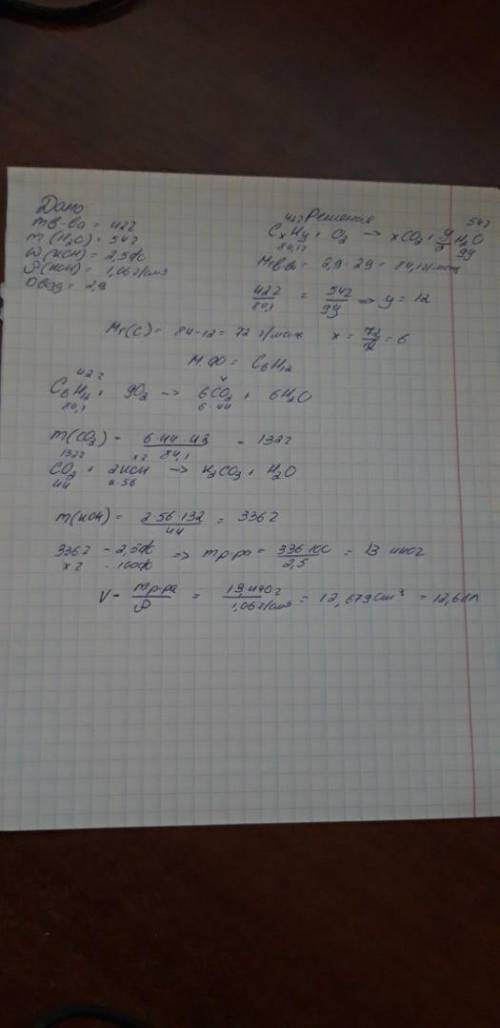 Дано
m в-ва = 42г
m (H₂O) = 54г
ω (KOH) = 2,5%
ρ (KOH) = 1,06 г/см³
D возд = 2,9
Решение
42г 54г
CxHy + O₂ → xCO₂ + y/2 H₂O
84,1г 9y
M в-ва = 2,9 · 29 = 84,1 г/моль
42г/84,1 = 54г/9y => y = 12
Mr(C) = 84-12 = 72 г/моль x = 72/12 = 6
М.ФО = C₆H₁₂
42г
C₆H₁₂ + 9O₂ → 6CO₂ + 6H₂O
84,1 6·44
m(CO₂) = 6·44·43/84,1 = 132г
132г x г
CO₂ + 2KOH → K₂CO₃ + H₂O
44 2·56
m(KOH) = 2·56·132/44 = 336г
336г - 2,5% => m р-ра = 336·100/2,5 = 13 440г
x г - 100%
V = m р-ра/ρ = 13440г/1,06 г/см³ = 12,679 см³ = 12,68л